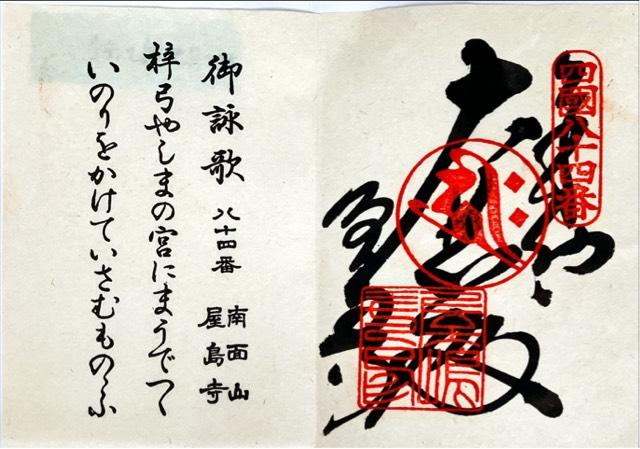 四國八十四番
大悲殿
屋島寺
御詠歌 八十四番 南面山 屋島寺
梓弓やしまの宮にまうでつゝ
いのりをかけていさむものゝふ